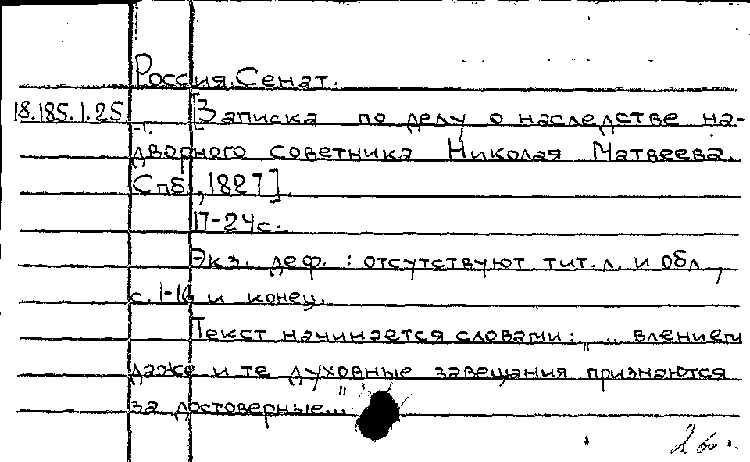 Россия. Сенат.
18.185.1.25 [Записка по делу о наследстве на-
дворного советника Николая Матвеева.
Спб., 1827].
17-24с.
Экз. деф.: отсутствуют тит.л. и обл.,
с. 1-16 и конец.
Текст начинается словами: "... влением
даже и те духовные завещания признаются
за достоверные..."